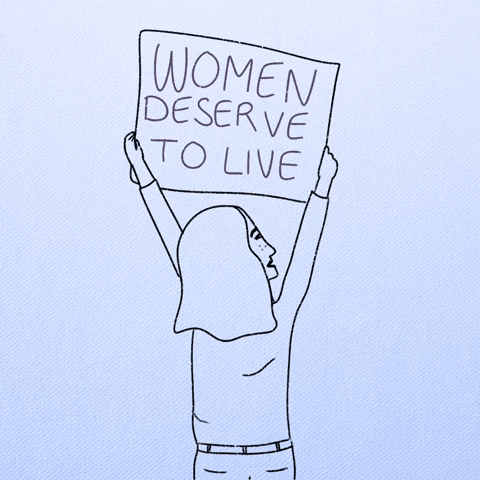 WOMEN
DESERVE
TO LIVE